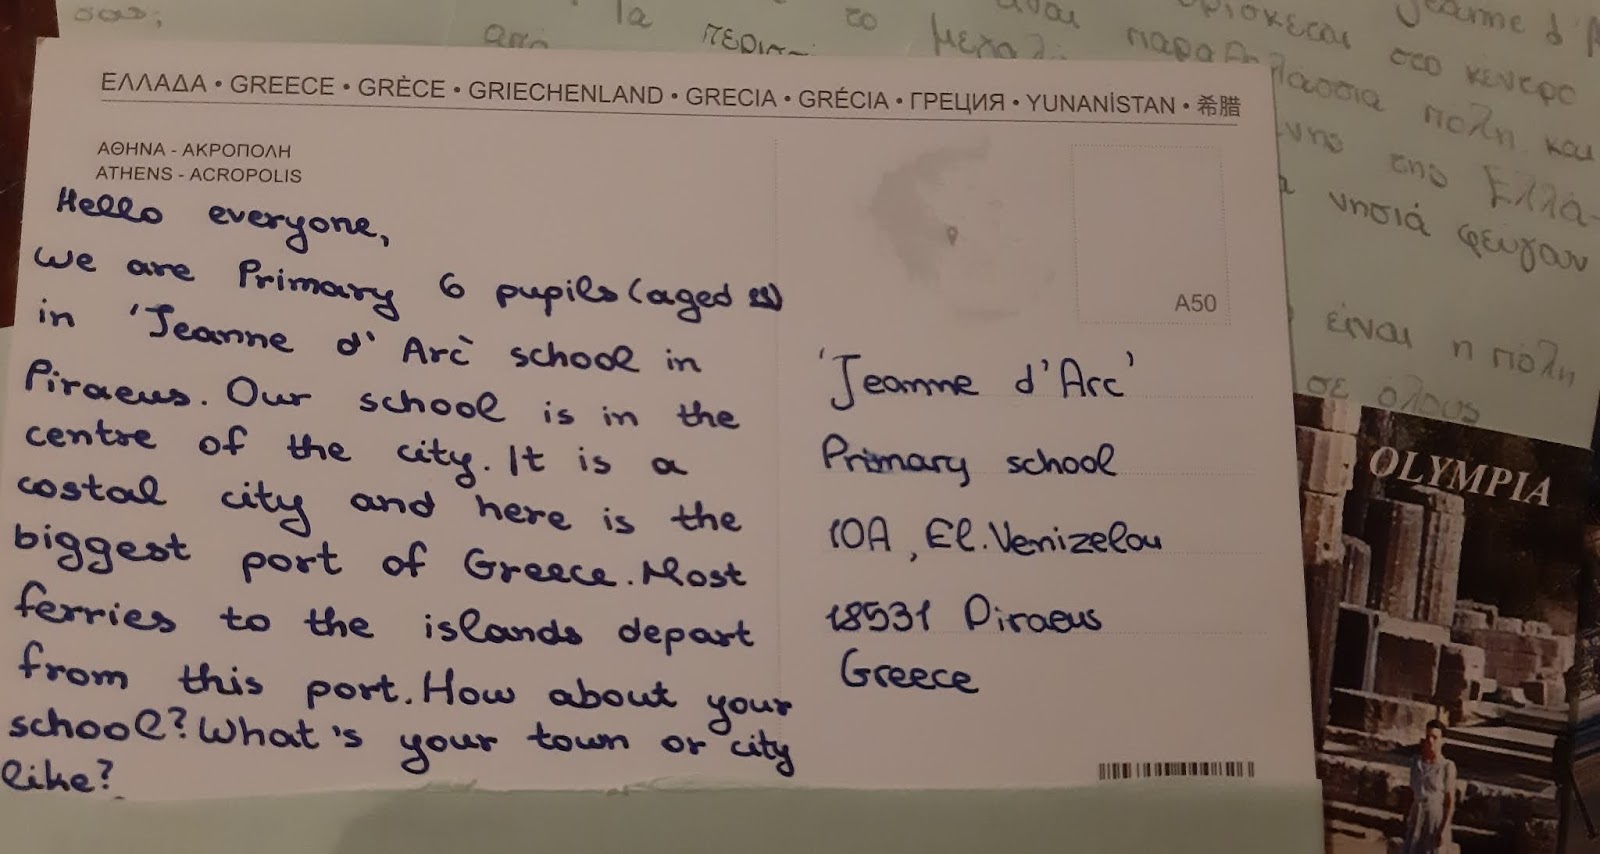 ΕΛΛΑΔΑ • GREECE • GRÈCE • GRIECHENLAND • GRECIA • GRÉCIA • ГРЕЦИЯ • YUNANİSTAN • 希腊
ΑΘΗΝΑ - ΑΚΡΟΠΟΛΗ
ATHENS - ACROPOLIS
Hello everyone,
we are Primary 6 pupils (aged 11)
in 'Jeanne d' Arc' school in
Piraeus. Our school is in the
centre of the city. It is a
costal city and here is the
biggest port of Greece. Most
ferries to the islands depart
from this port. How about your
school? What's your town or city
like?
A50
'Jeanne d'Arc'
Primary school
10A, El. Venizelou
18531 Piraeus
Greece
σας;
Τα
το
Jeanne d'
από
στο κέντρο
πόλη και
της Ελλά-
νησιά φεύγουν
είναι η πόλη
σε όλους
OLYMPIA